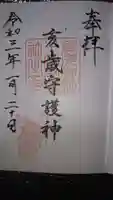 奉拝
亥歳守護神
令和三年一月二十日